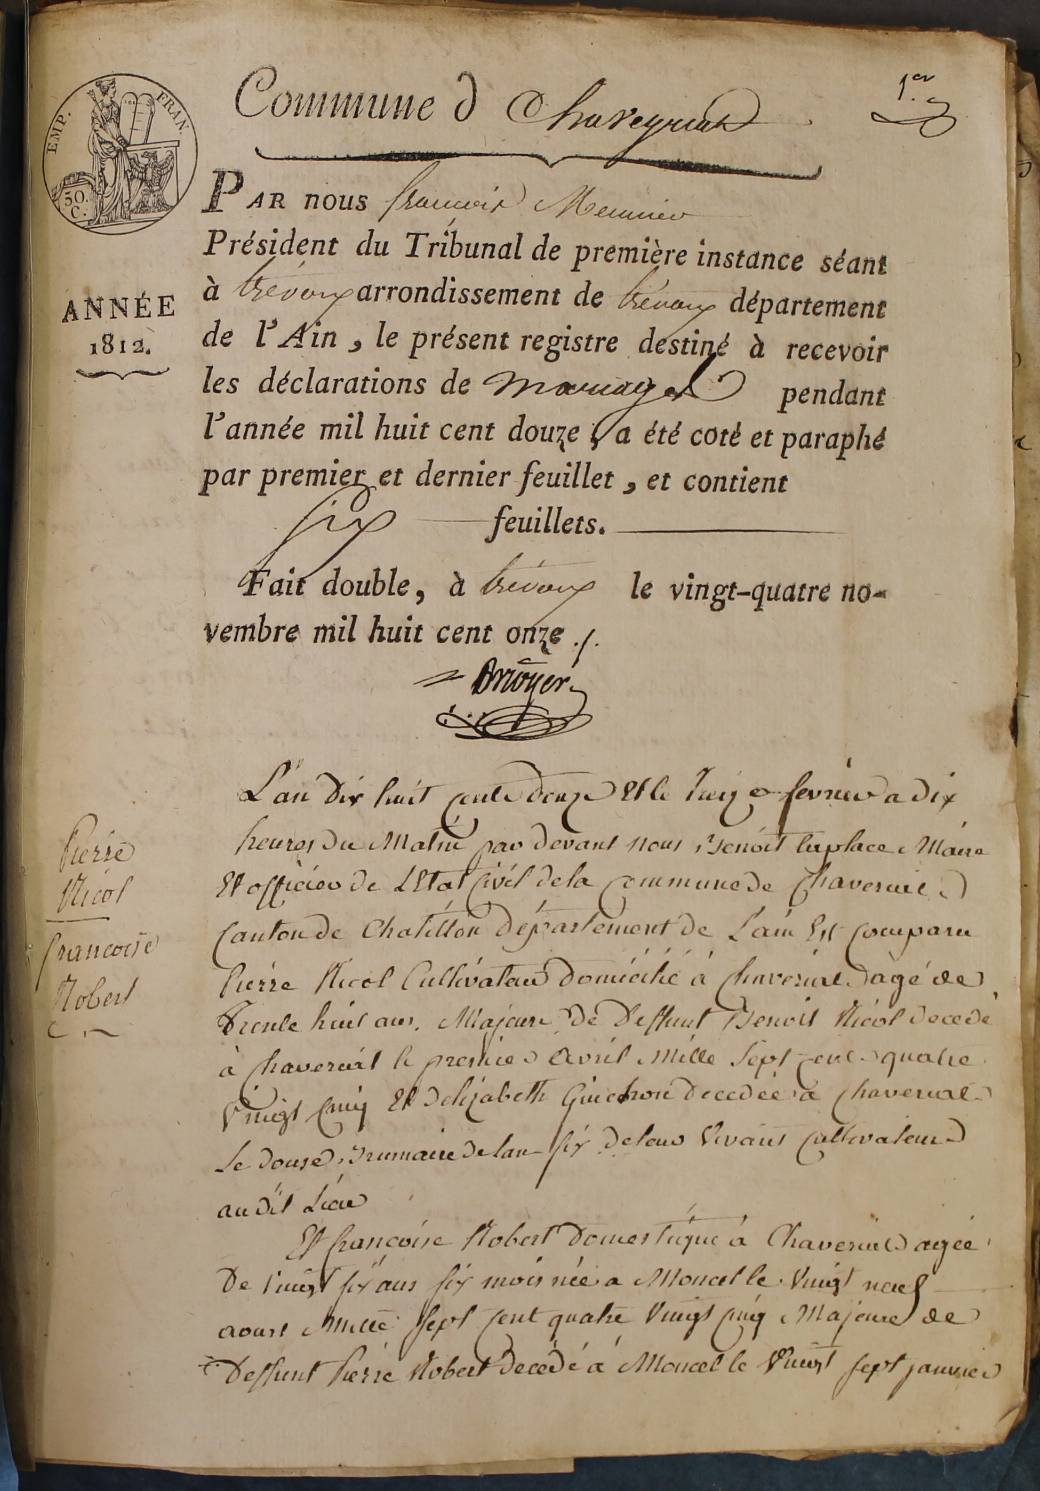 1.er
Commune d Chaveyriat
EMP. FRAN
30.
C.
PAR nous françois Meunier
Président du Tribunal de première instance séant
à trévoux arrondissement de trévoux département
ANNÉE
1812.
de l'Ain, le présent registre destiné à recevoir
les déclarations de mariages pendant
l'année mil huit cent douze, a été coté et paraphé
par premier et dernier feuillet, et contient
six feuillets.
Fait double, à trévoux le vingt-quatre no-
vembre mil huit cent onze ./.
L'an Dix huit cents douze Et le Treize fevrier a dix
heures du Matin par devant nous Benoit laplace Maire
Et officier de L'Etat Civil de la Commune de Chaveriat
Canton de Chatillon Département de L'ain Est Comparu
Pierre Nicol Cultivateur Domicilié à Chaveriat agé de
Trente huit ans. Majeur de Deffunt Benoit Nicol Decedé
à Chaveriat le premier Avril Mille Sept cent quatre
Vingt Cinq Et D'elizabeth Guichon Decedée a Chaveriat
Le douze Brumaire de lan six de leur Vivant Cultivateur
au dit Lieu
Pierre
Nicol
francoise
Robert
Et françoise Robert Domestique à Chaveriat agée
De Vingt six ans six mois née a Moncel le Vingt neuf
aoust Mille Sept Cent quatre Vingt Cinq Majeure de
Deffunt Pierre Robert Decédé à Moncel le Vingt sept janvier